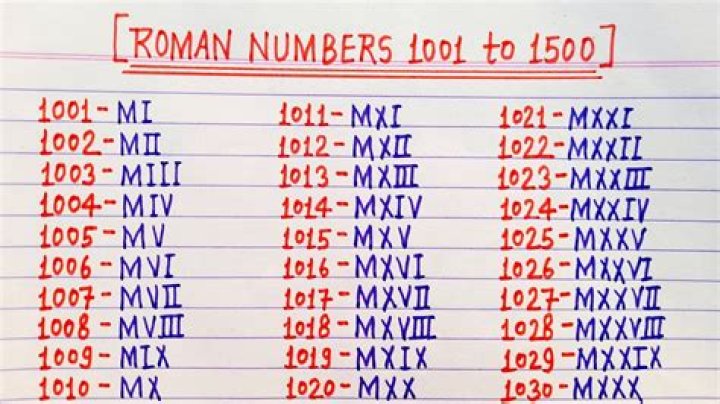 [ROMAN NUMBERS 1001 to 1500]
1001 - MI 1011 - MXI 1021 - MXXI
1002 - MII 1012 - MXII 1022 - MXXII
1003 - MIII 1013 - MXIII 1023 - MXXIII
1004 - MIV 1014 - MXIV 1024 - MXXIV
1005 - MV 1015 - MXV 1025 - MXXV
1006 - MVI 1016 - MXVI 1026 - MXXVI
1007 - MVII 1017 - MXVII 1027 - MXXVII
1008 - MVIII 1018 - MXVIII 1028 - MXXVIII
1009 - MIX 1019 - MXIX 1029 - MXXIX
1010 - MX 1020 - MXX 1030 - MXXX